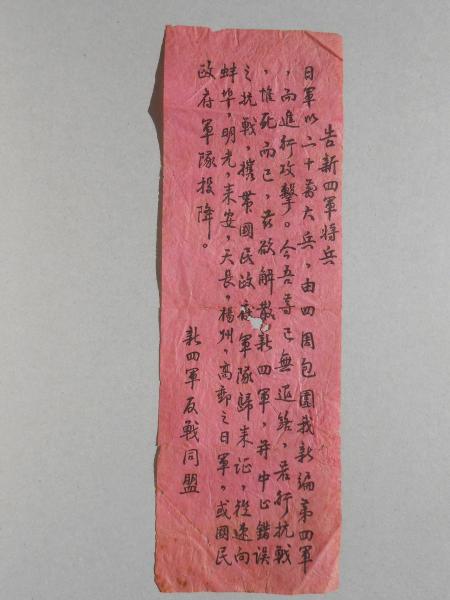 告新四軍將兵
日軍以二十萬大兵，由四周包圍我新編第四軍
，而進行攻擊。今吾等已無退路，若行抗戰
，惟死而已，茲欲解散新四軍，并中止錯誤
之抗戰，攜帶國民政府軍隊歸來証，從速向
蚌埠，明光，来安，天長，楊州，高郵之日軍，或國民
政府軍隊投降。
新四軍反戰同盟